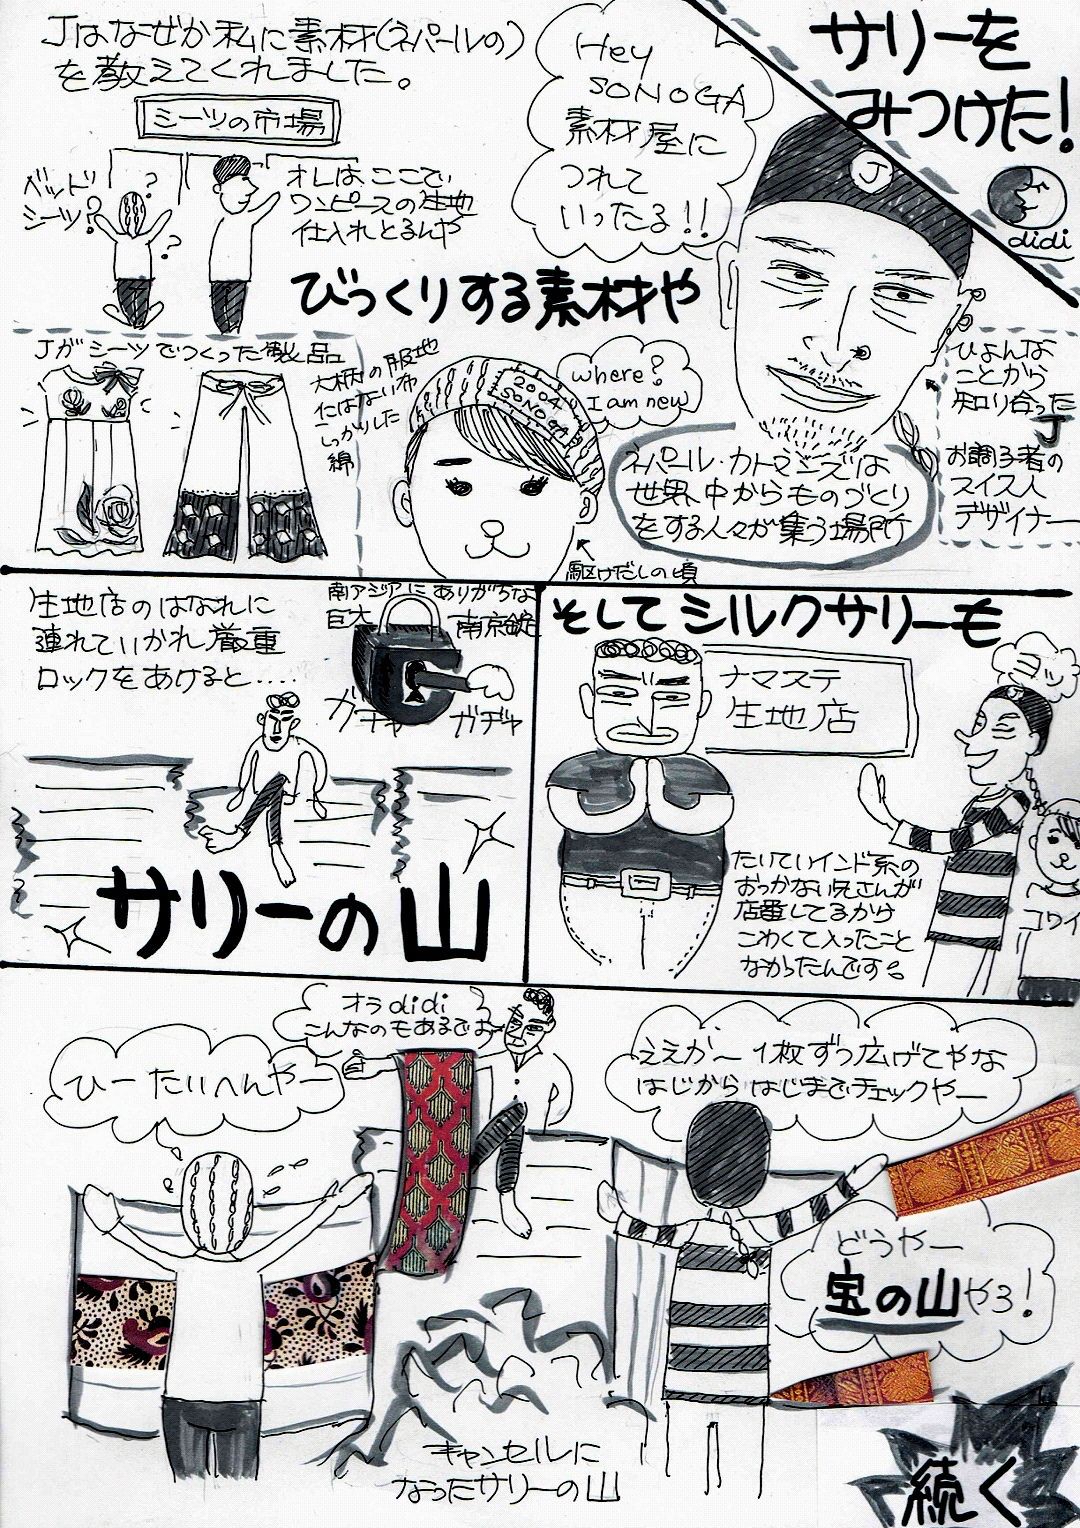 サリーを
みつけた!
didi
Jはなぜか私に素材(ネパールの)
を教えてくれました。
シーツの市場
ベッド
シーツ?
?
?
オレはここで
ワンピースの生地
仕入れとるんや
Hey
SONOGA
素材屋に
つれて
いったる!!
J
びっくりする素材や
Jがシーツでつくった製品
大柄の服地
にはない布
しっかりした
綿
where?
I am new
2004
SONOGA
駆けだしの頃
ネパール・カトマンズは
世界中からものづくり
をする人々が集う場所
ひょんな
ことから
知り合った
J
お調子者の
スイス人
デザイナー
生地店のはなれに
連れていかれ厳重
ロックをあけると....
南アジアにありがちな
巨大
南京錠
ガチャ
ガチャ
サリーの山
そしてシルクサリーも
ナマステ
生地店
たいていインド系の
おっかない兄さんが
店番してるかけ
こわくて入ったこと
なかったんです。
コワイ
オラdidi
こんなのもあるでよ
ひーたいへんやー
ええかー1枚ずつ広げてやな
はじからはじまでチェックやー
どうやー
宝の山やろ!
キャンセルに
なったサリーの山
続く